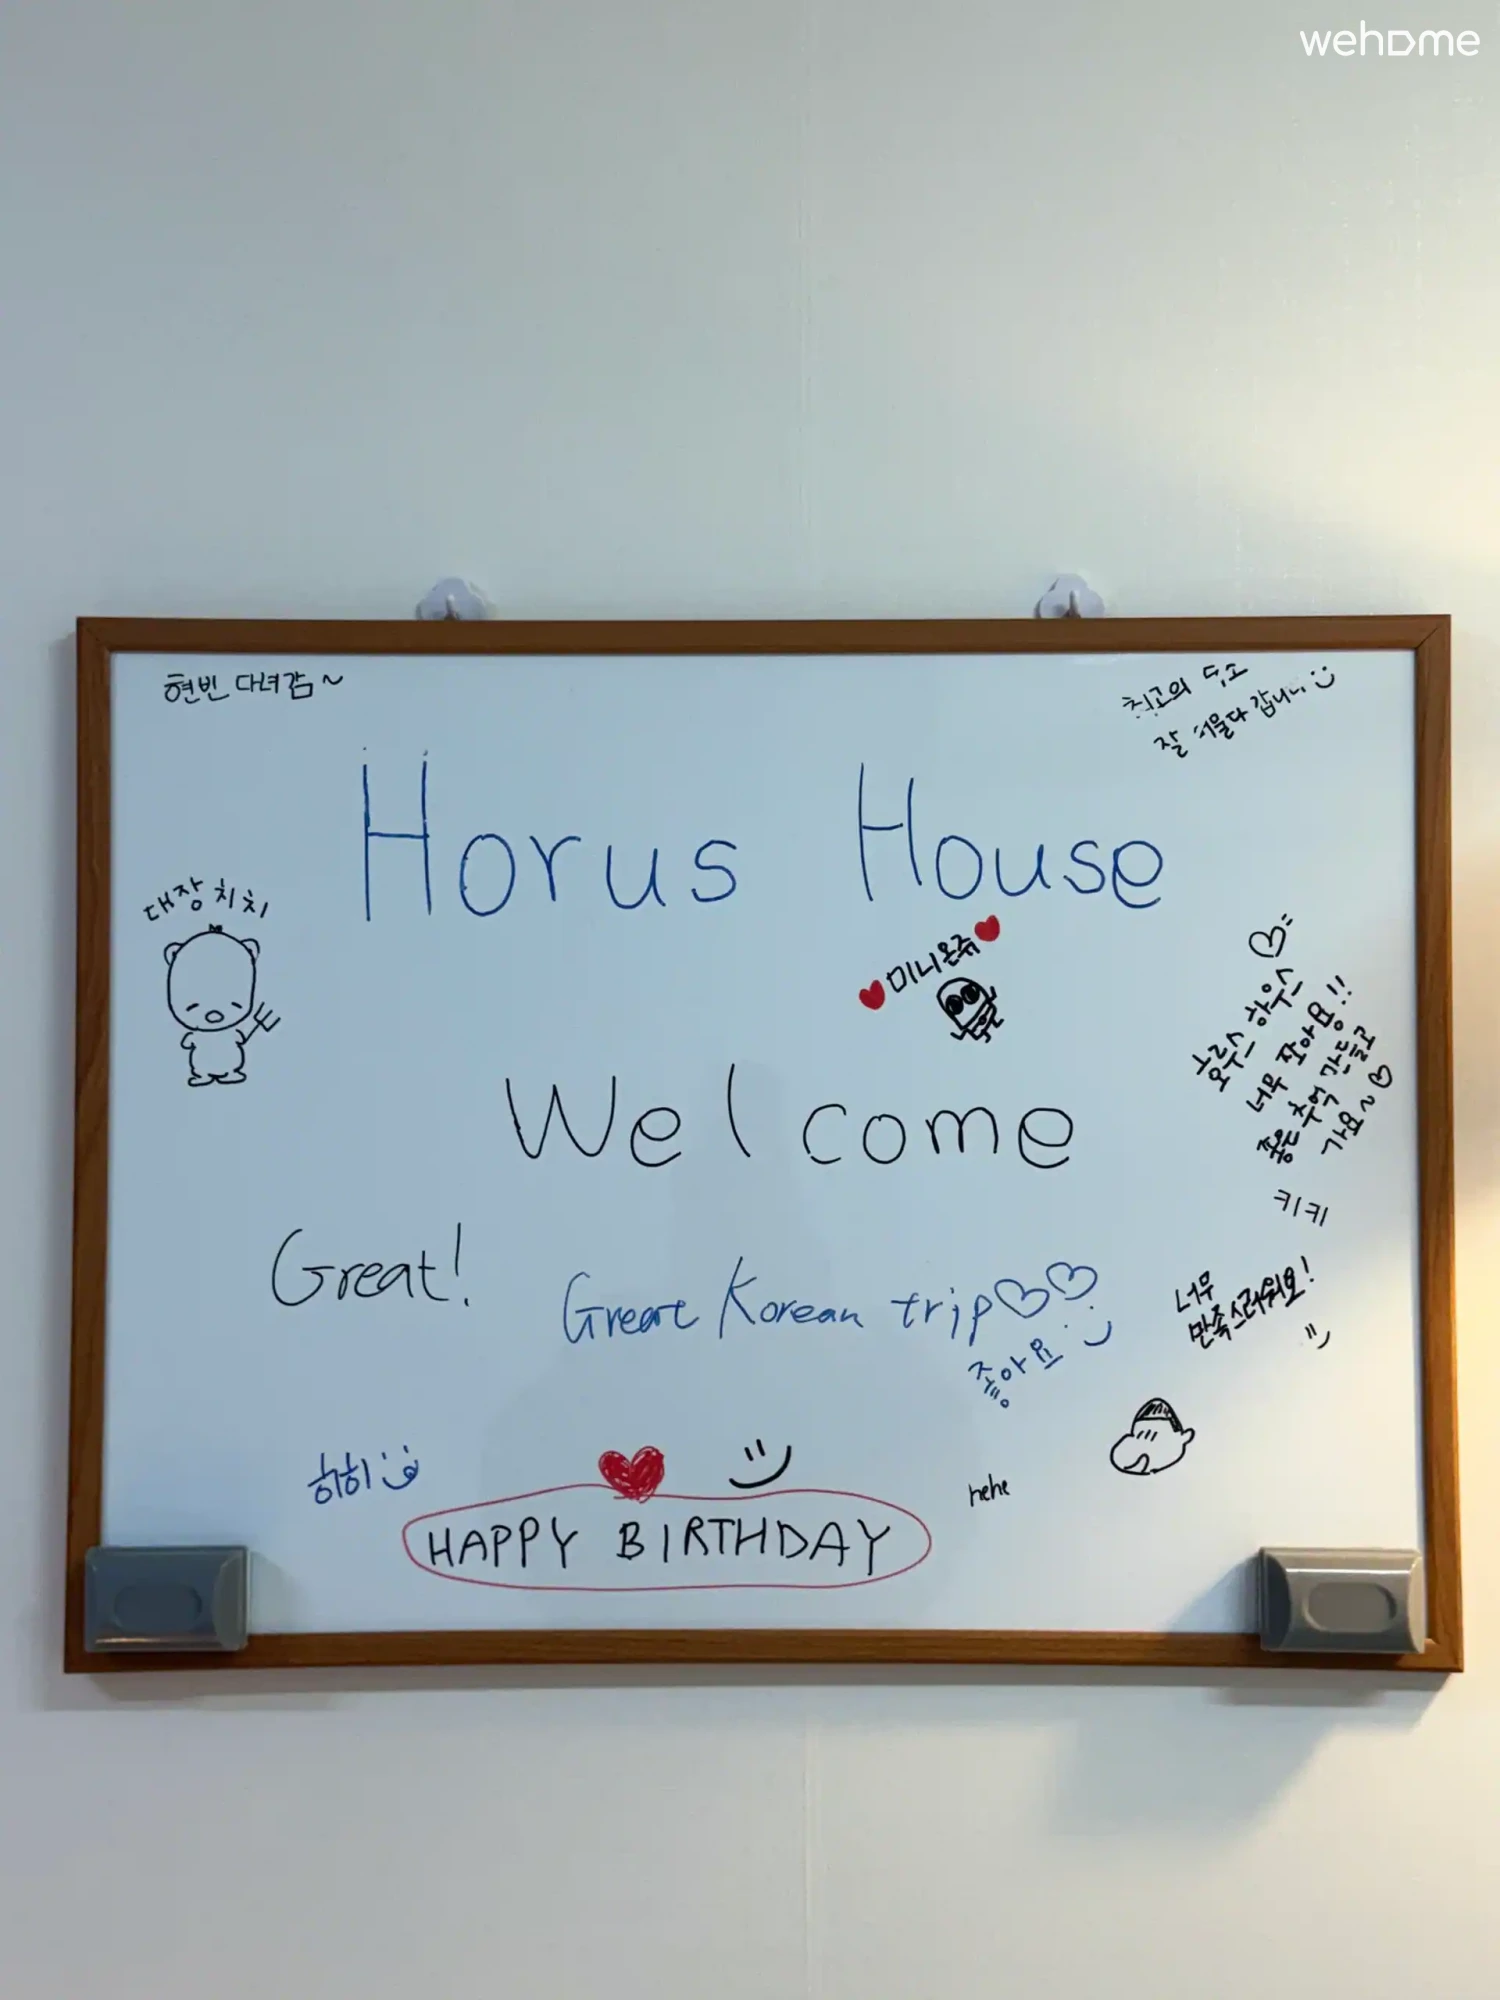 wehome
현빈 다녀감~
최고의 숙소
잘 머물다 갑니다
Horus House
대장 치치
미니온쥬
호루스 하우스
너무 좋아용!!
좋은 추억 만들고
가요~
Welcome
키키
Great!
Great Korean trip
좋아요
너무
만족스러워요!
히히
hehe
HAPPY BIRTHDAY